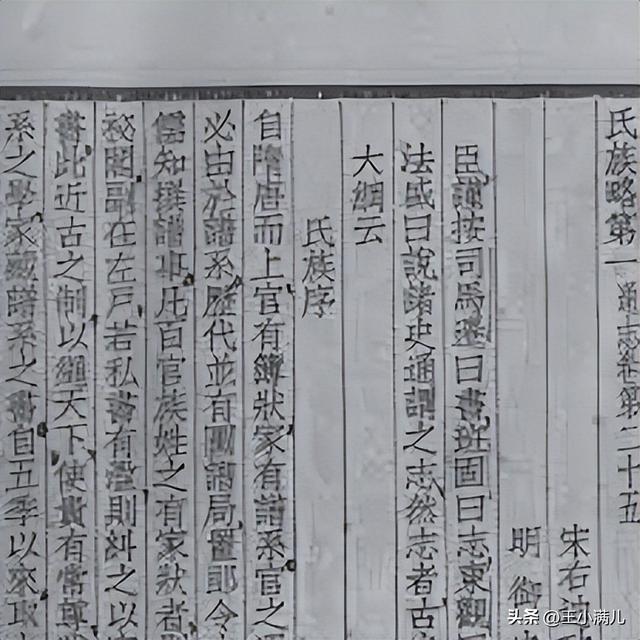 氏族略第一 通志卷第二十五
宋右迪
明 御
臣謹按司馬遷曰書班固曰志東觀
法盛曰說諸史通謂之志然志者古
大綱云
氏族序
自隋唐而上官有簿狀家有譜系官之
必由於譜系歷代並有圖譜局置郎令
儒知撰譜事凡百官族姓之有家狀者
祕閣副在左戶若私書有濫則糾之以
書此近古之制以繩天下使貴有常尊
系之學家藏譜系之書自五季以來取
头条 @王小满儿